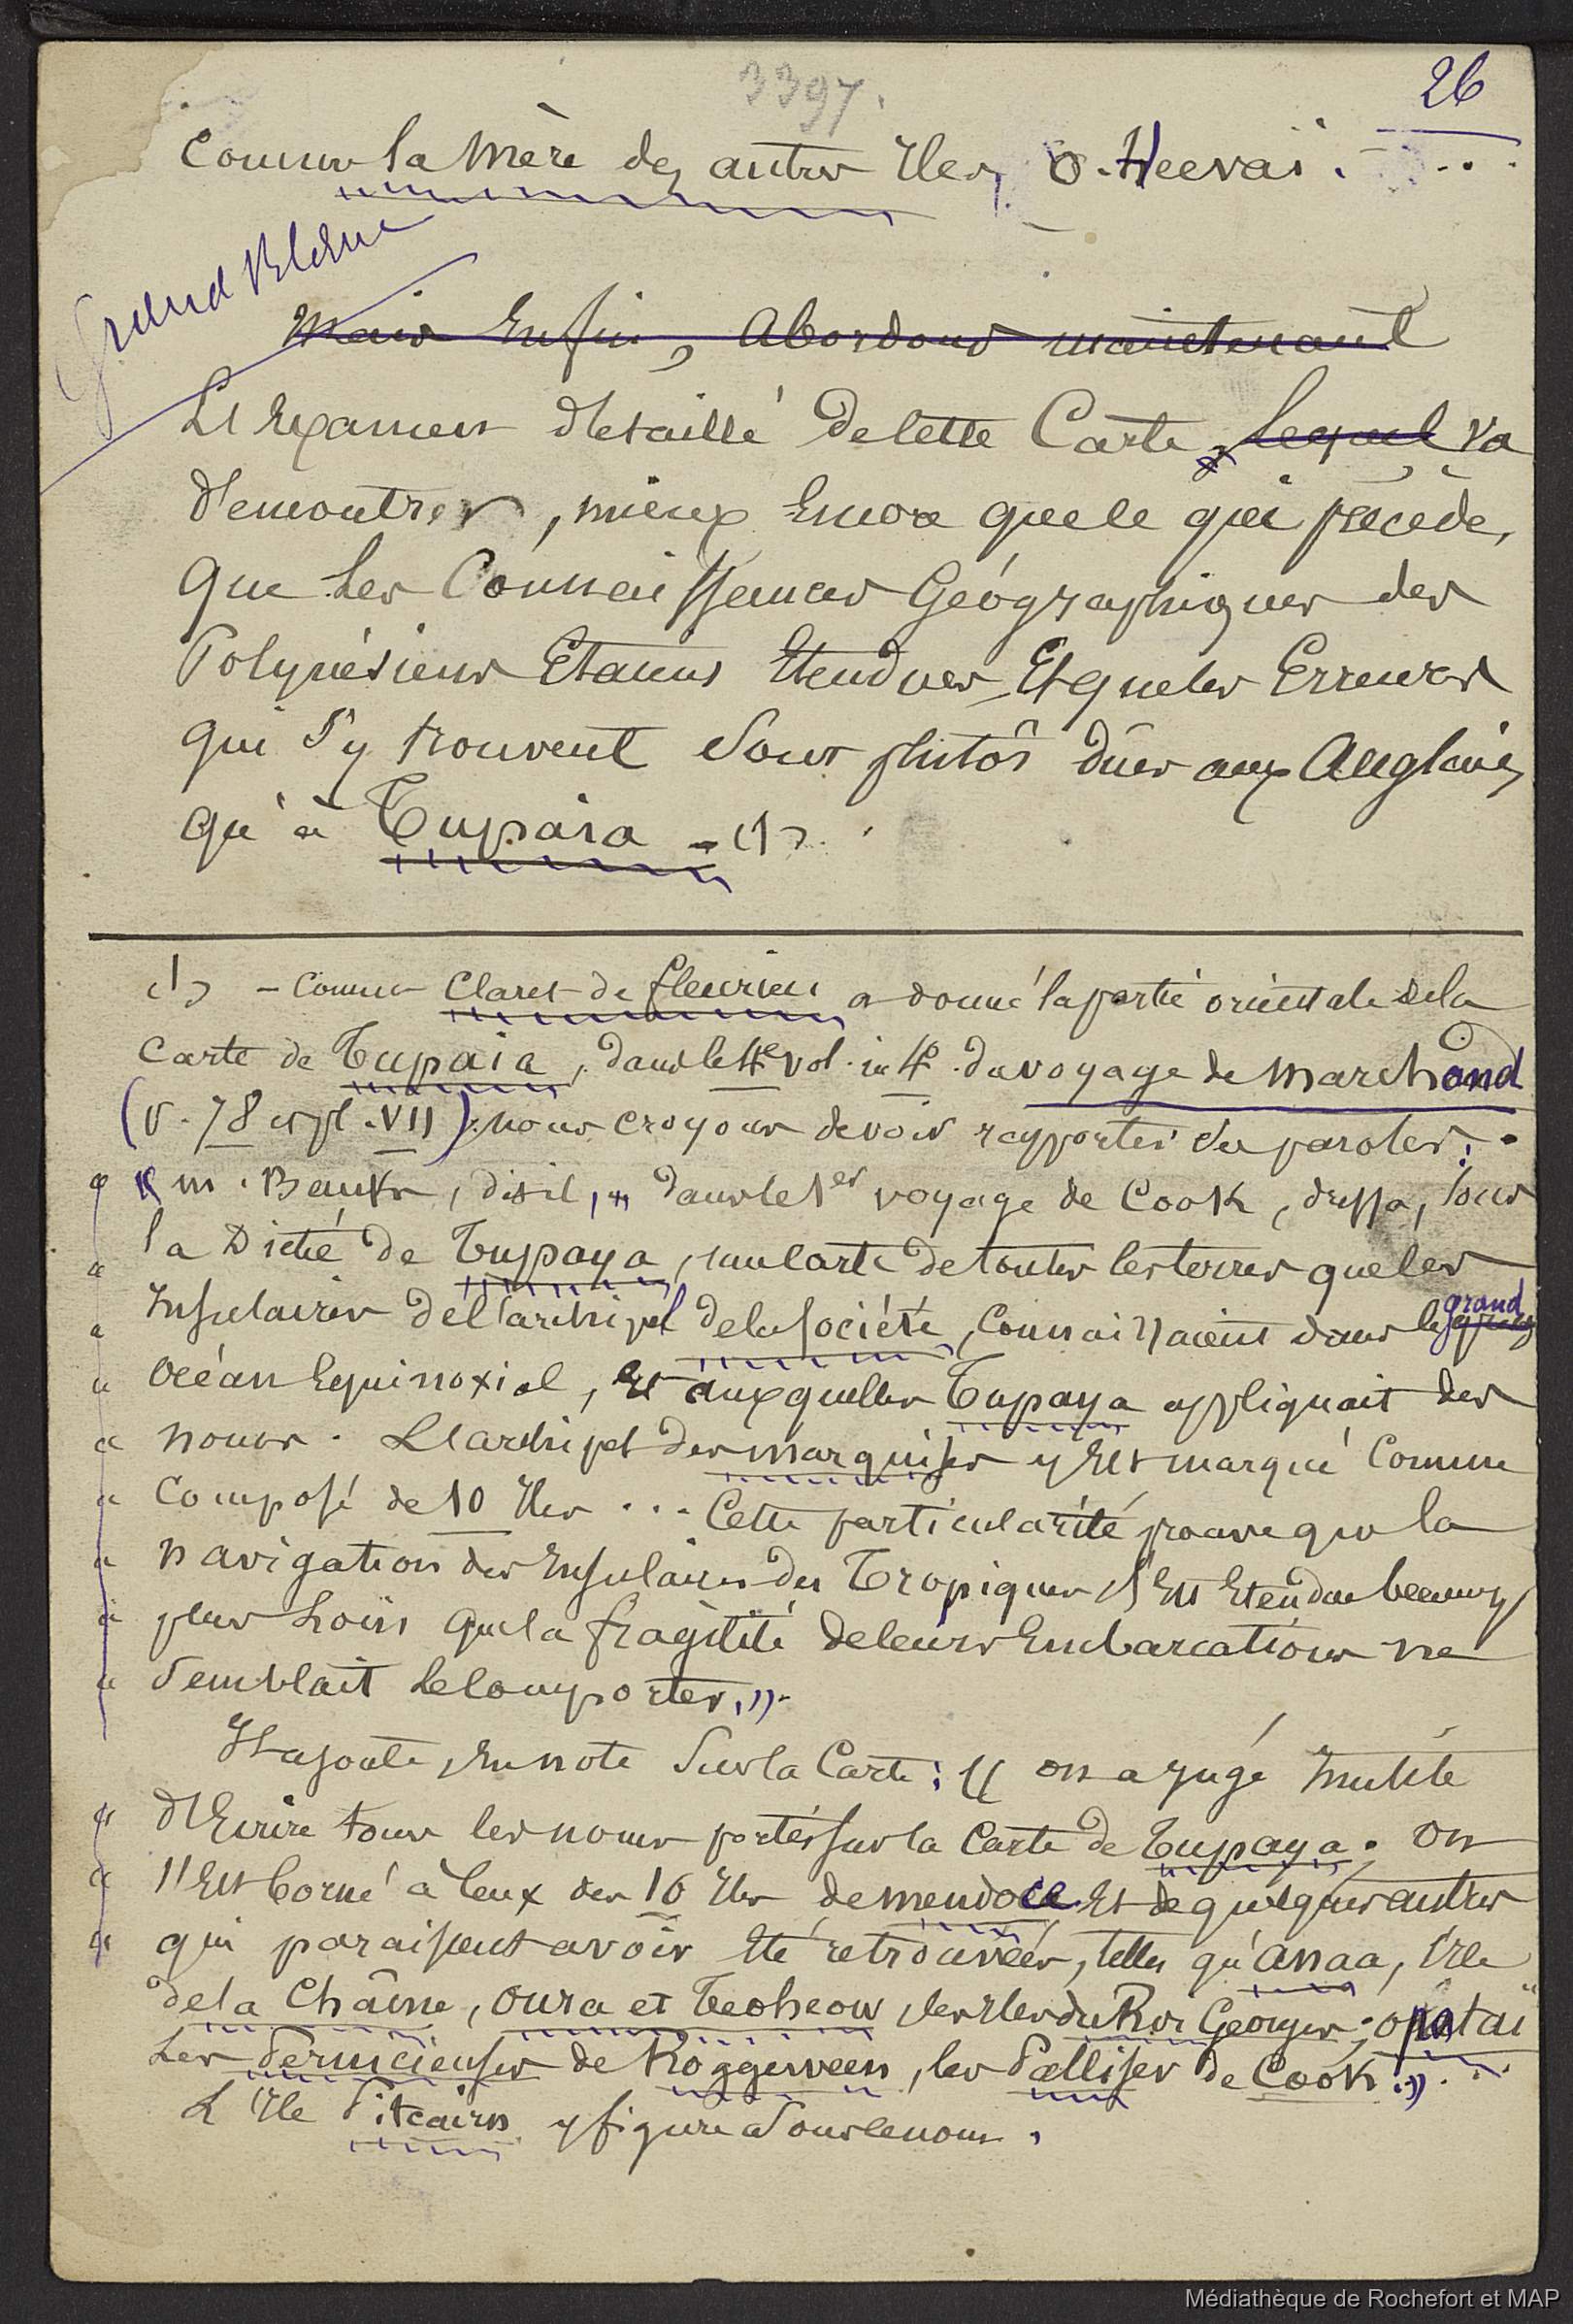 3397.
26
comme la mère des autres Iles, O.Heevaï. ...
Grand Blanc
Mais Enfin, Abordons maintenant
L'Examen détaillé de cette Carte, lequel va
démontrer, mieux Encore que ce qui précède,
que les Connaissances Géographiques des
Polynésiens Etaient Etendues, Et que les Erreurs
qui s'y trouvent sont plutôt dûes aux Anglais,
qu'à Tupaia - (1)
(1) - Comme Claret de fleurieu a donné la partie orientale de la
Carte de Tupaia, dans le 4e vol. in 4o. du voyage de Marchand
(V. 78 et pl. VII): nous croyons devoir rapporter ses paroles:
« M. Banks, dit-il, " dans le 1er voyage de Cook, dressa, sous
« la Dictée de Tupaya, une carte de toutes les terres que les
« Insulaires de l'archipel de la Société, connaissaient dans le grand
« océan Equinoxial, Et auxquelles Tupaya appliquait des
« noms. L'archipel des marquises y Est marqué Comme
« Composé de 10 Iles ... Cette particularité prouve que la
« navigation des Insulaires des Tropiques s'Est Etendue beaucoup
« plus Loin que la fragilité de leurs Embarcations ne
« semblait le comporter.»
Il ajoute, En note sur la Carte: « on a jugé Inutile
« d'Ecrire tous les noms portés sur la Carte de Tupaya; on
« s'Est borné à Ceux des 10 Iles de mendoce Et de quelques autres
« qui paraissent avoir Eté retrouvées, telles qu'anaa, l'Ile
de la Chaîne, oura et Teoheow, les Iles du Roi Georges; opatai
Les Pernicieuses de Roggeween, les Palliser de Cook.» ...
L'Ile Pitcairn y figure sous le nom.
Médiathèque de Rochefort et MAP